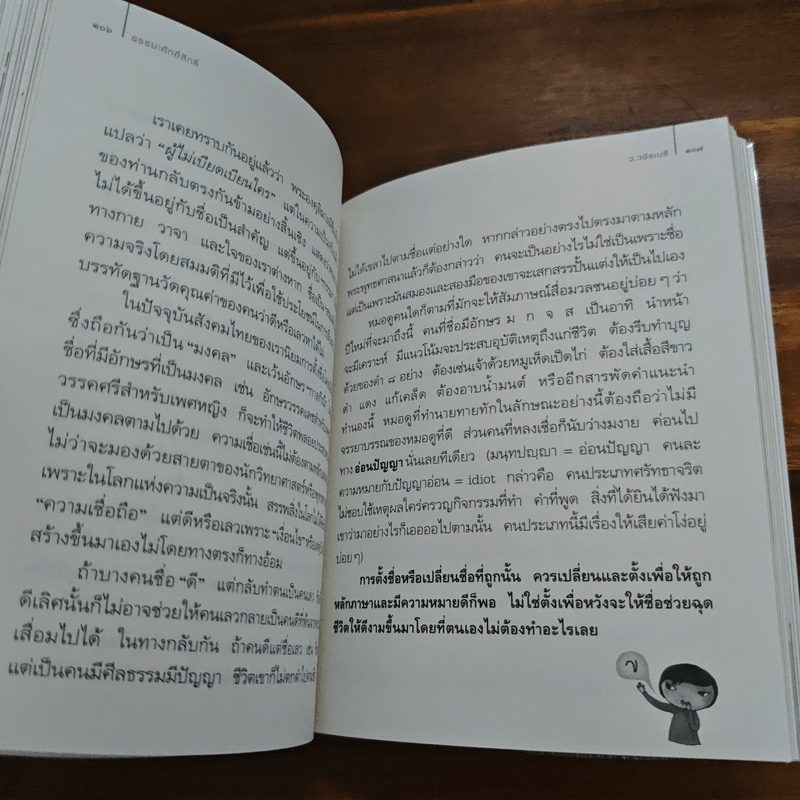 ๑๐๖ ธรรมะศักดิ์สิทธิ์
เราเคยทราบกันอยู่แล้วว่า พระองคุลิมาล
แปลว่า "ผู้ไม่เบียดเบียนใคร" แต่ในความ
ของท่านกลับตรงกันข้ามอย่างสิ้นเชิง
ไม่ได้ขึ้นอยู่กับชื่อเป็นสำคัญ แต่ขึ้นอยู่กับการ
ทางกาย วาจา และใจของเราต่างหาก
ความจริงโดยสมมติที่มีไว้เพื่อใช้ประโยชน์ในการ
บรรทัดฐานวัดคุณค่าของคนว่าดีหรือเลวหาได้ไม่
ในปัจจุบันสังคมไทยของเรานิยมการตั้งชื่อ
ซึ่งถือกันว่าเป็น "มงคล" และเว้นอักษร
ชื่อที่มีอักษรที่เป็นมงคล เช่น อักษรวรรคเดช
วรรคศรีสำหรับเพศหญิง ก็จะทำให้ชีวิตพลอย
เป็นมงคลตามไปด้วย ความเชื่อเช่นนี้ไม่ต้อง
ไม่ว่าจะมองด้วยสายตาของนักวิทยาศาสตร์หรือ
เพราะในโลกแห่งความเป็นจริงนั้น สรรพสิ่งในโลก
"ความเชื่อถือ" แต่ดีหรือเลวเพราะ "เงื่อนไข"
สร้างขึ้นมาเองไม่โดยทางตรงก็ทางอ้อม
ถ้าบางคนชื่อ "ดี" แต่กลับทำตนเป็นคนเลว
ดีเลิศนั้นก็ไม่อาจช่วยให้คนเลวกลายเป็นคนดี
เสื่อมไปได้ ในทางกลับกัน ถ้าคนดีแต่ชื่อเลว
แต่เป็นคนมีศีลธรรมมีปัญญา ชีวิตเขาก็ไม่ตกต่ำ
ว.วชิรเมธี ๑๐๗
ไม่ได้เลวไปตามชื่อแต่อย่างใด หากกล่าวอย่างตรงไปตรงมาตามหลัก
พระพุทธศาสนาแล้วก็ต้องกล่าวว่า คนจะเป็นอย่างไรไม่ใช่เป็นเพราะชื่อ
แต่เป็นเพราะมันสมองและสองมือของเขาจะเสกสรรปั้นแต่งให้เป็นไปเอง
หมอดูคนใดก็ตามที่มักจะให้สัมภาษณ์สื่อมวลชนอยู่บ่อยๆ ว่า
ปีใหม่ที่จะมาถึงนี้ คนที่ชื่อมีอักษร ม ก จ ส เป็นอาทิ นำหน้า
จะมีเคราะห์ มีแนวโน้มจะประสบอุบัติเหตุถึงแก่ชีวิต ต้องรีบทำบุญ
ด้วยของดำ ๘ อย่าง ต้องเซ่นเจ้าด้วยหมูเห็ดเป็ดไก่ ต้องใส่เสื้อสีขาว
ดำ แดง แก้เคล็ด ต้องอาบน้ำมนต์ หรืออีกสารพัดคำแนะนำ
ทำนองนี้ หมอดูที่ทำนายทายทักในลักษณะอย่างนี้ต้องถือว่าไม่มี
จรรยาบรรณของหมอดูที่ดี ส่วนคนที่หลงเชื่อก็นับว่างมงาย ค่อนไป
ทาง อ่อนปัญญา นั่นเลยทีเดียว (มนฺทปญฺญา = อ่อนปัญญา คนละ
ความหมายกับปัญญาอ่อน = idiot กล่าวคือ คนประเภทศรัทธาจริต
ไม่ชอบใช้เหตุผลใคร่ครวญกิจกรรมที่ทำ คำที่พูด สิ่งที่ได้ยินได้ฟังมา
เขาว่ามาอย่างไรก็เออออไปตามนั้น คนประเภทนี้มีเรื่องให้เสียค่าโง่อยู่
บ่อยๆ)
การตั้งชื่อหรือเปลี่ยนชื่อที่ถูกนั้น ควรเปลี่ยนและตั้งเพื่อให้ถูก
หลักภาษาและมีความหมายดีก็พอ ไม่ใช่ตั้งเพื่อหวังจะให้ชื่อช่วยฉุด
ชีวิตให้ดีงามขึ้นมาโดยที่ตนเองไม่ต้องทำอะไรเลย